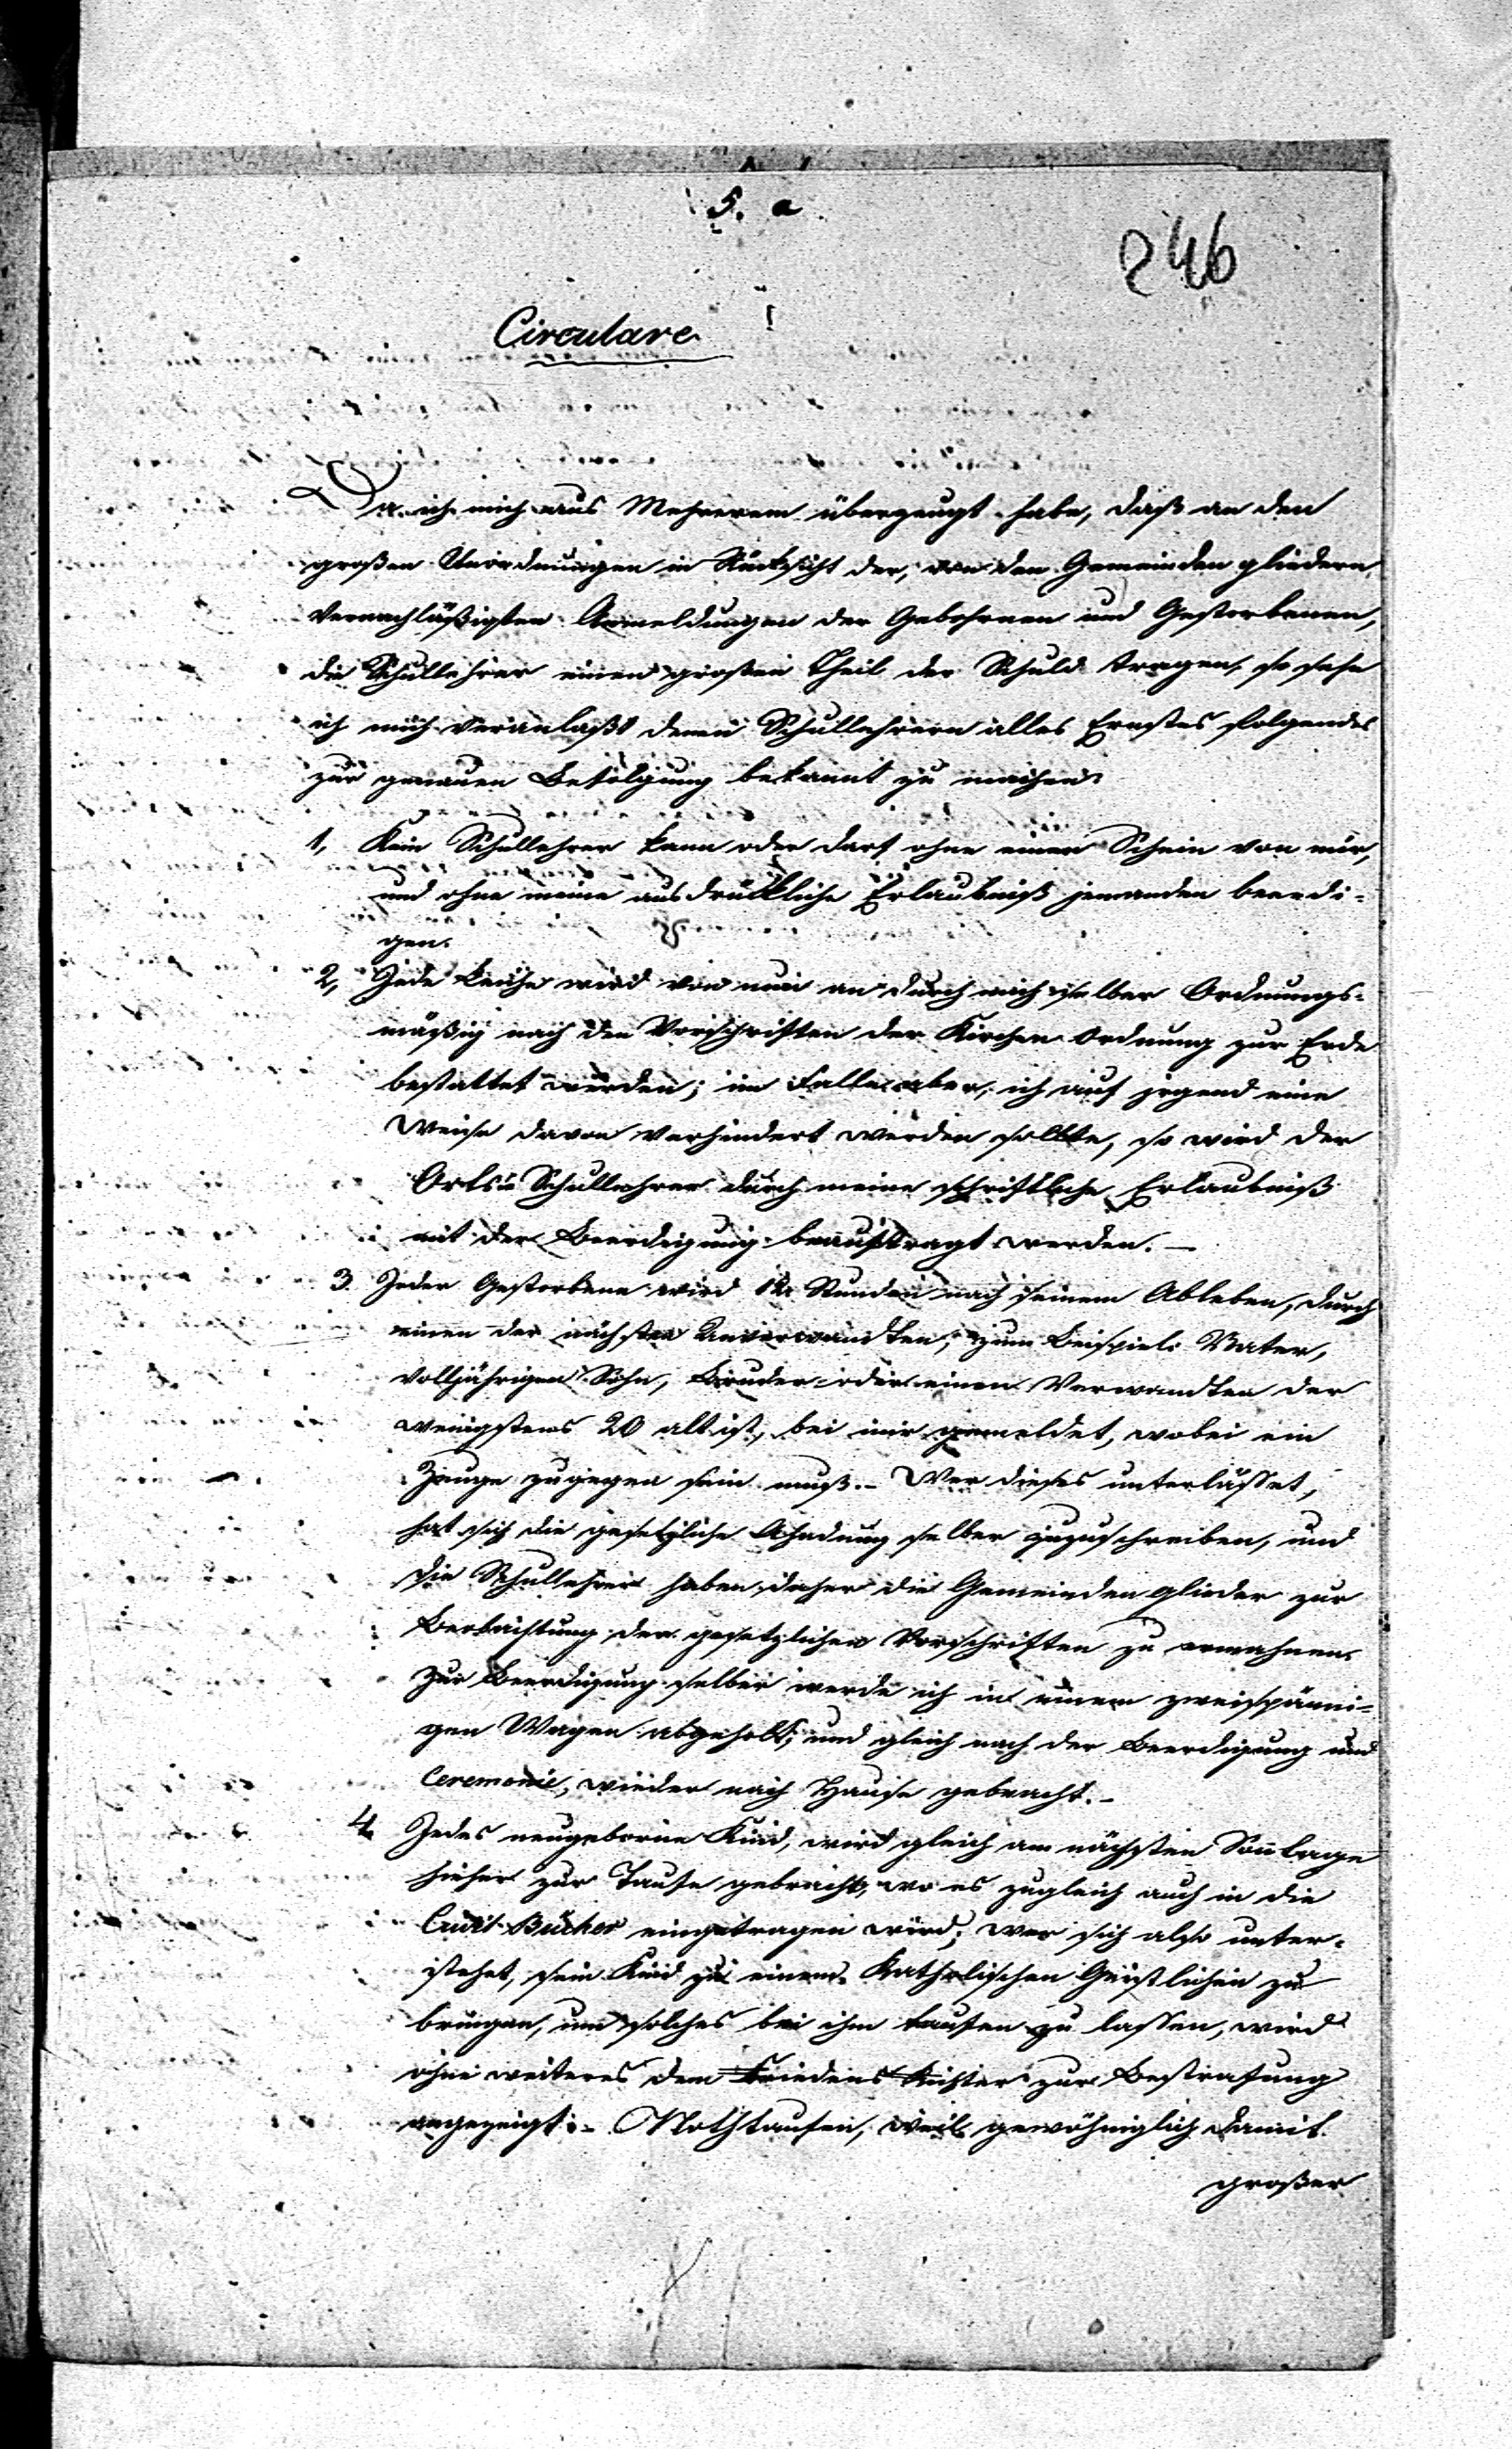 5. a
246
Circulare
Da ich mich aus Mehrerem überzeugt habe, daß an den
großen Unordnungen in Rücksicht der, von den Gemeinden gliedern
vernachläßigten Anmeldungen der Gebohrnen und Gestorbenen,
die Schullehrer einen großen Theil der Schuld tragen, so sehe
ich mich veranlaßt denen Schullehrern alles Ernstes folgendes
zur genauen Befolgung bekannt zu machen:
1, Kein Schullehrer kann oder darf ohne einen Schein von mir,
und ohne meine ausdrückliche Erlaubniß jemanden beerdi-
gen.
2, Jede Leiche wird von nun an durch mich selber Ordnungs-
mäßig nach den Vorschriften der Kirchen Ordnung zur Erde
bestattet werden; im Falle aber, ich auf jrgend eine
Weise davon verhindert werden sollte, so wird der
Orts Schullehrer durch meine schriftliche Erlaubniß
mit der Beerdigung beauftragt werden. —
3. Jeder Gestorbene wird 12 Stunden nach seinem Ableben, durch
einen der nächsten Anverwandten, zum Beispiel: Vater,
volljährigen Sohn, Bruder oder einen Verwandten der
wenigstens 20 alt ist, bei mir gemeldet, wobei ein
Zeuge zugegen sein muß. – Wer dieses unterlässet,
hat sich die gesetzliche Ahndung selber zuzuschreiben, und
die Schullehrer haben daher die Gemeinden glieder zur
Beobachtung der gesetzlichen Vorschriften zu ermahnen.
Zur Beerdigung selber werde ich in einem zweispänni-
gen Wagen abgeholt, und gleich nach der Beerdigung und
Ceremonie, wieder nach Hause gebracht. –
4. Jedes neugeborne Kind, wird gleich am nächsten Sontage
hieher zur Taufe gebracht, wo es zugleich auch in die
Civil-Bücher eingetragen wird; wer sich also unter-
stehet, sein Kind zu einem Katholischen Geistlichen zu
bringen, um solches bei ihm taufen zu lassen, wird
ohne weiteres dem Friedens Richter zur Bestrafung
angezeigt. – Nothtaufen, weil gewöhniglich damit
großer